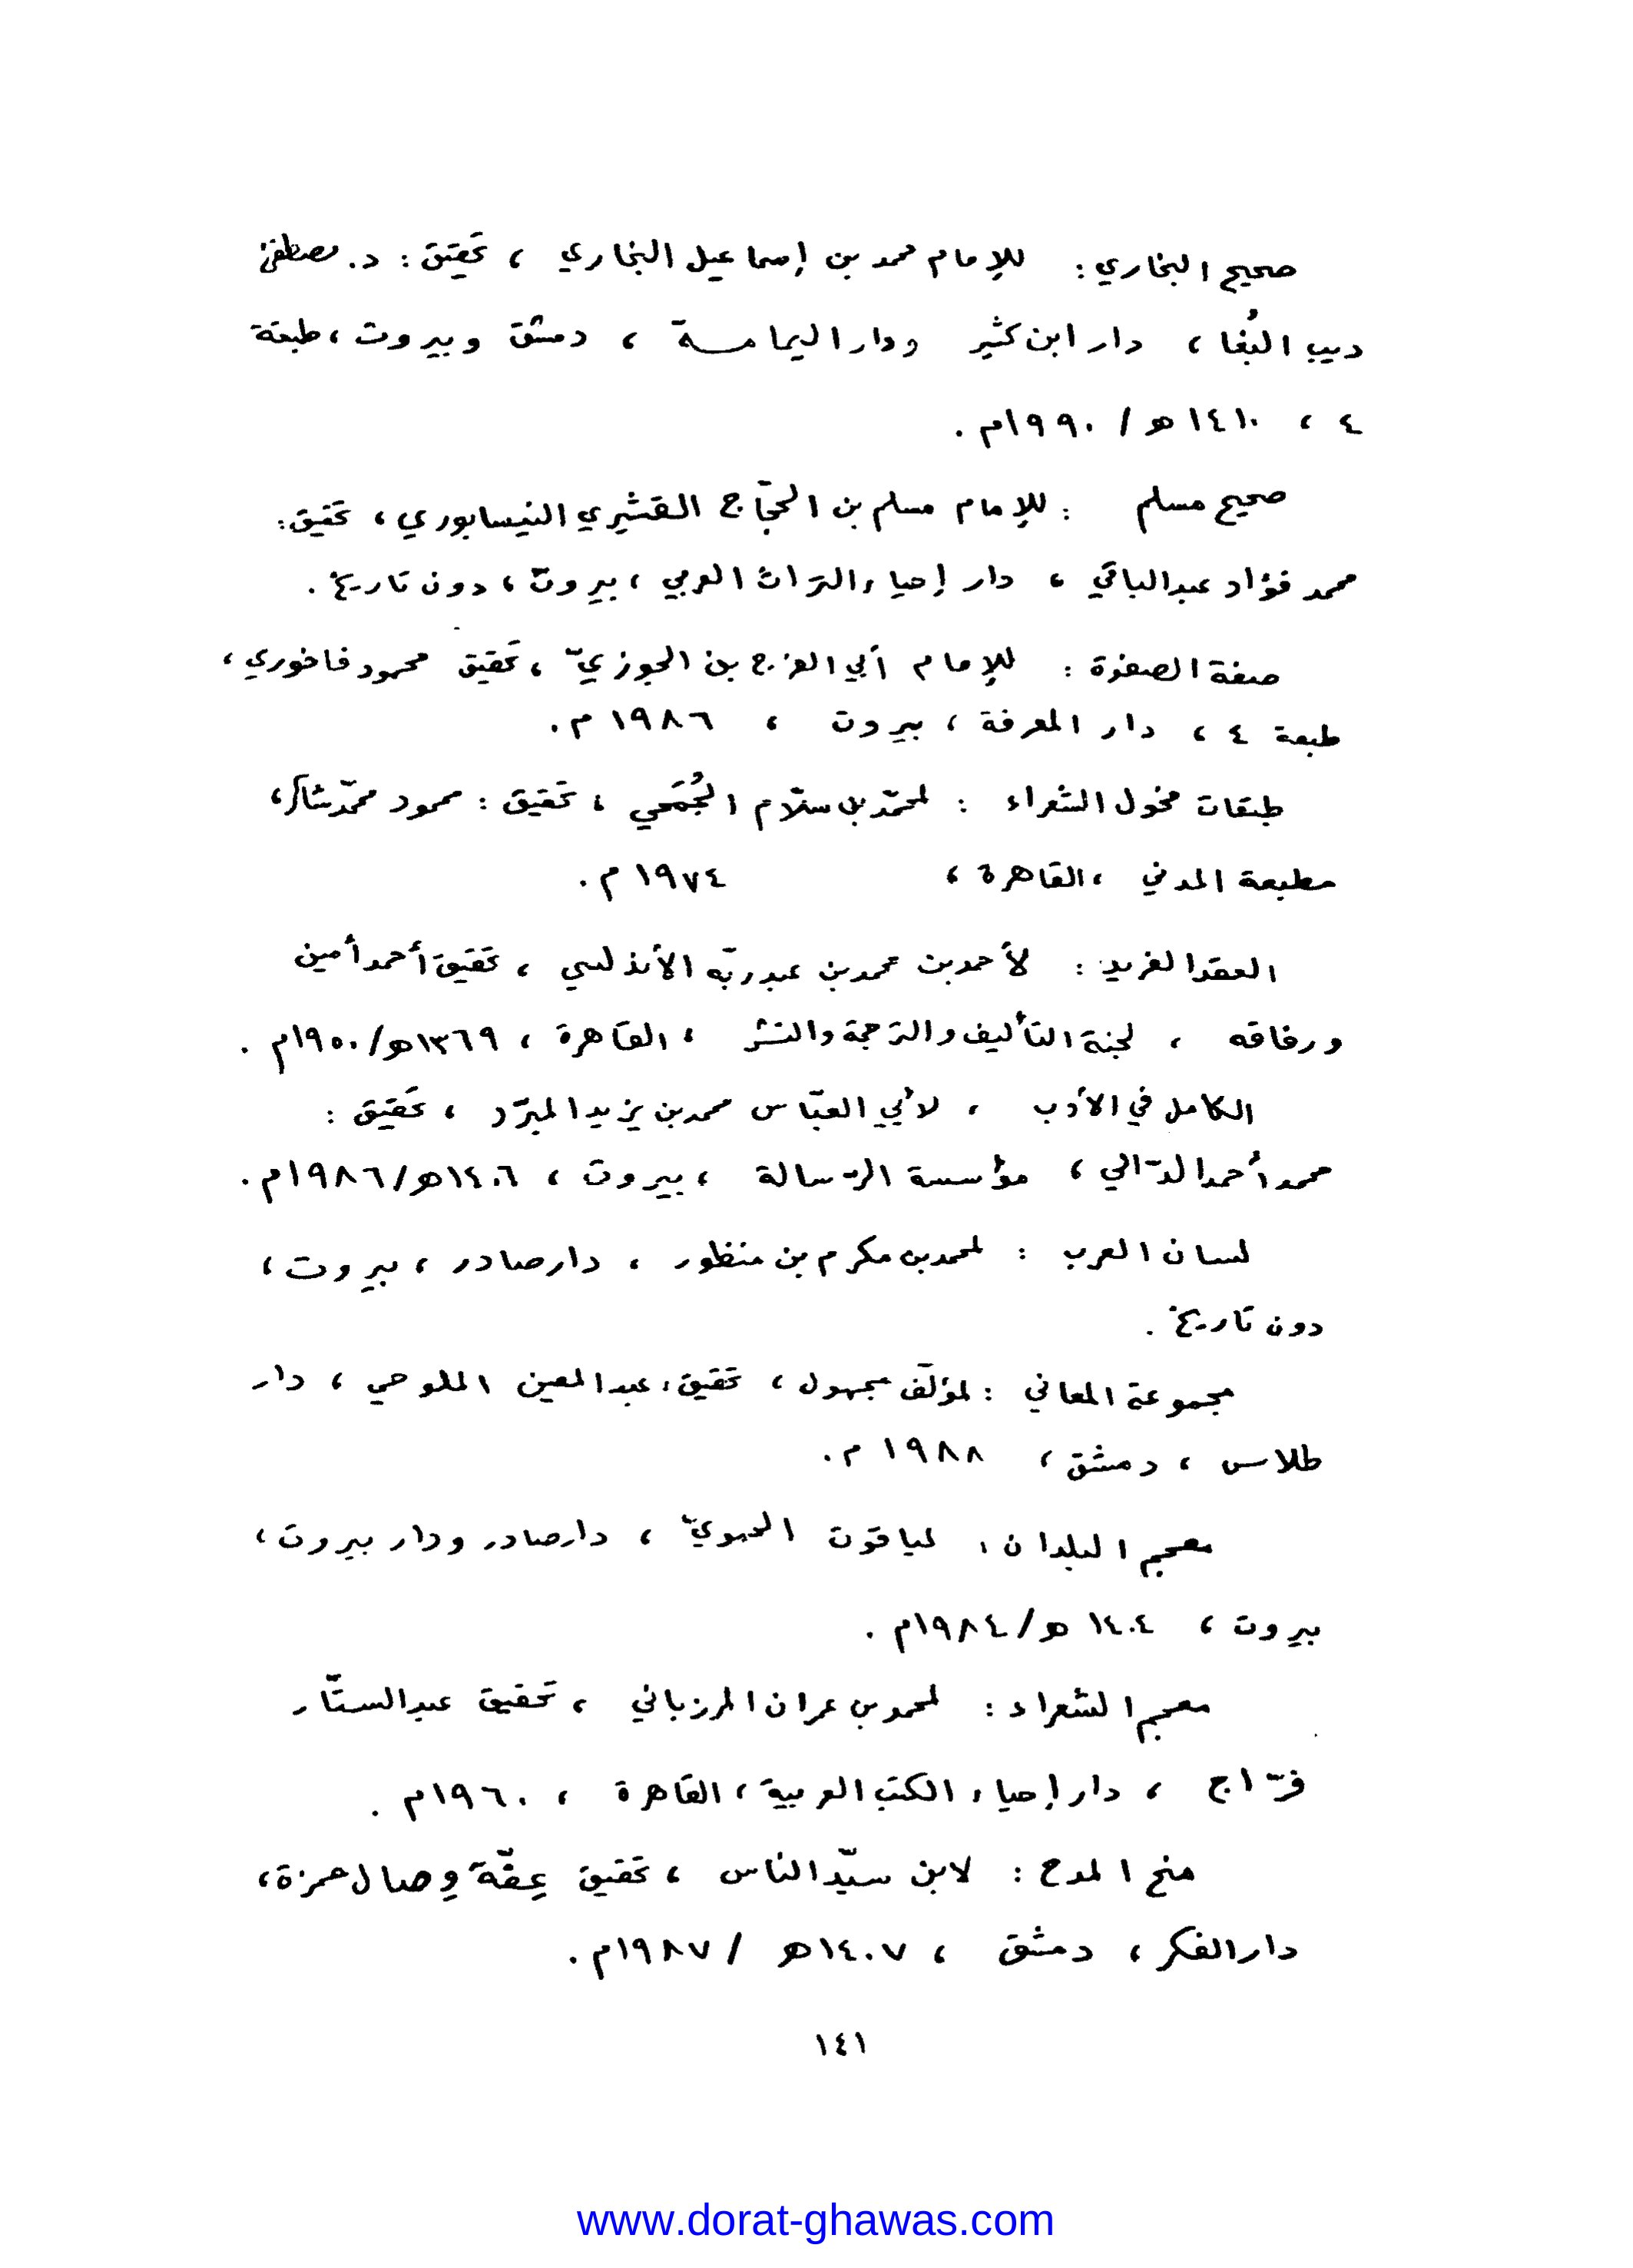 صحيح البخاري : للإمام محمد بن إسماعيل البخاري ، تحقيق : د. مصطفى
ديب البُغا ، دار ابن كثير ودار اليمامة ، دمشق وبيروت ، طبعة
٤ ، ١٤١٠ هـ / ١٩٩٠م .
صحيح مسلم : للإمام مسلم بن الحجّاج القشيري النيسابوري ، تحقيق :
محمد فؤاد عبدالباقي ، دار إحياء التراث العربي ، بيروت ، دون تاريخ .
صفة الصفوة : للإمام أبي الفرج بن الجوزيّ ، تحقيق محمود فاخوري ،
طبعة ٤ ، دار المعرفة ، بيروت ، ١٩٨٦ م .
طبقات فحول الشعراء : لمحمّد بن سلّام الجُمَحي ، تحقيق : محمود محمّد شاكر ،
مطبعة المدني ، القاهرة ، ١٩٧٤ م .
العقد الفريد : لأحمد بن محمد بن عبد ربّه الأندلسي ، تحقيق أحمد أمين
ورفاقه ، لجنة التأليف والترجمة والنشر ، القاهرة ، ١٣٦٩هـ/١٩٥٠م .
الكامل في الأدب ، لأبي العبّاس محمد بن يزيد المبرّد ، تحقيق :
محمد أحمد الدّالي ، مؤسسة الرّسالة ، بيروت ، ١٤٠٦هـ/١٩٨٦م .
لسان العرب : لمحمد بن مكرم بن منظور ، دار صادر ، بيروت ،
دون تاريخ .
مجموعة المعاني : لمؤلّف مجهول ، تحقيق : عبد المعين الملوحي ، دار
طلاس ، دمشق ، ١٩٨٨ م .
معجم البلدان : لياقوت الحمويّ ، دار صادر ودار بيروت ،
بيروت ، ١٤٠٤ هـ/١٩٨٤م .
معجم الشعراء : لمحمد بن عمران المرزباني ، تحقيق عبدالستّار
فرّاج ، دار إحياء الكتب العربية ، القاهرة ، ١٩٦٠م .
منح المدح : لابن سيّد الناس ، تحقيق عِفّة وِصال حمزة ،
دار الفكر ، دمشق ، ١٤٠٧هـ / ١٩٨٧م .
١٤١
www.dorat-ghawas.com